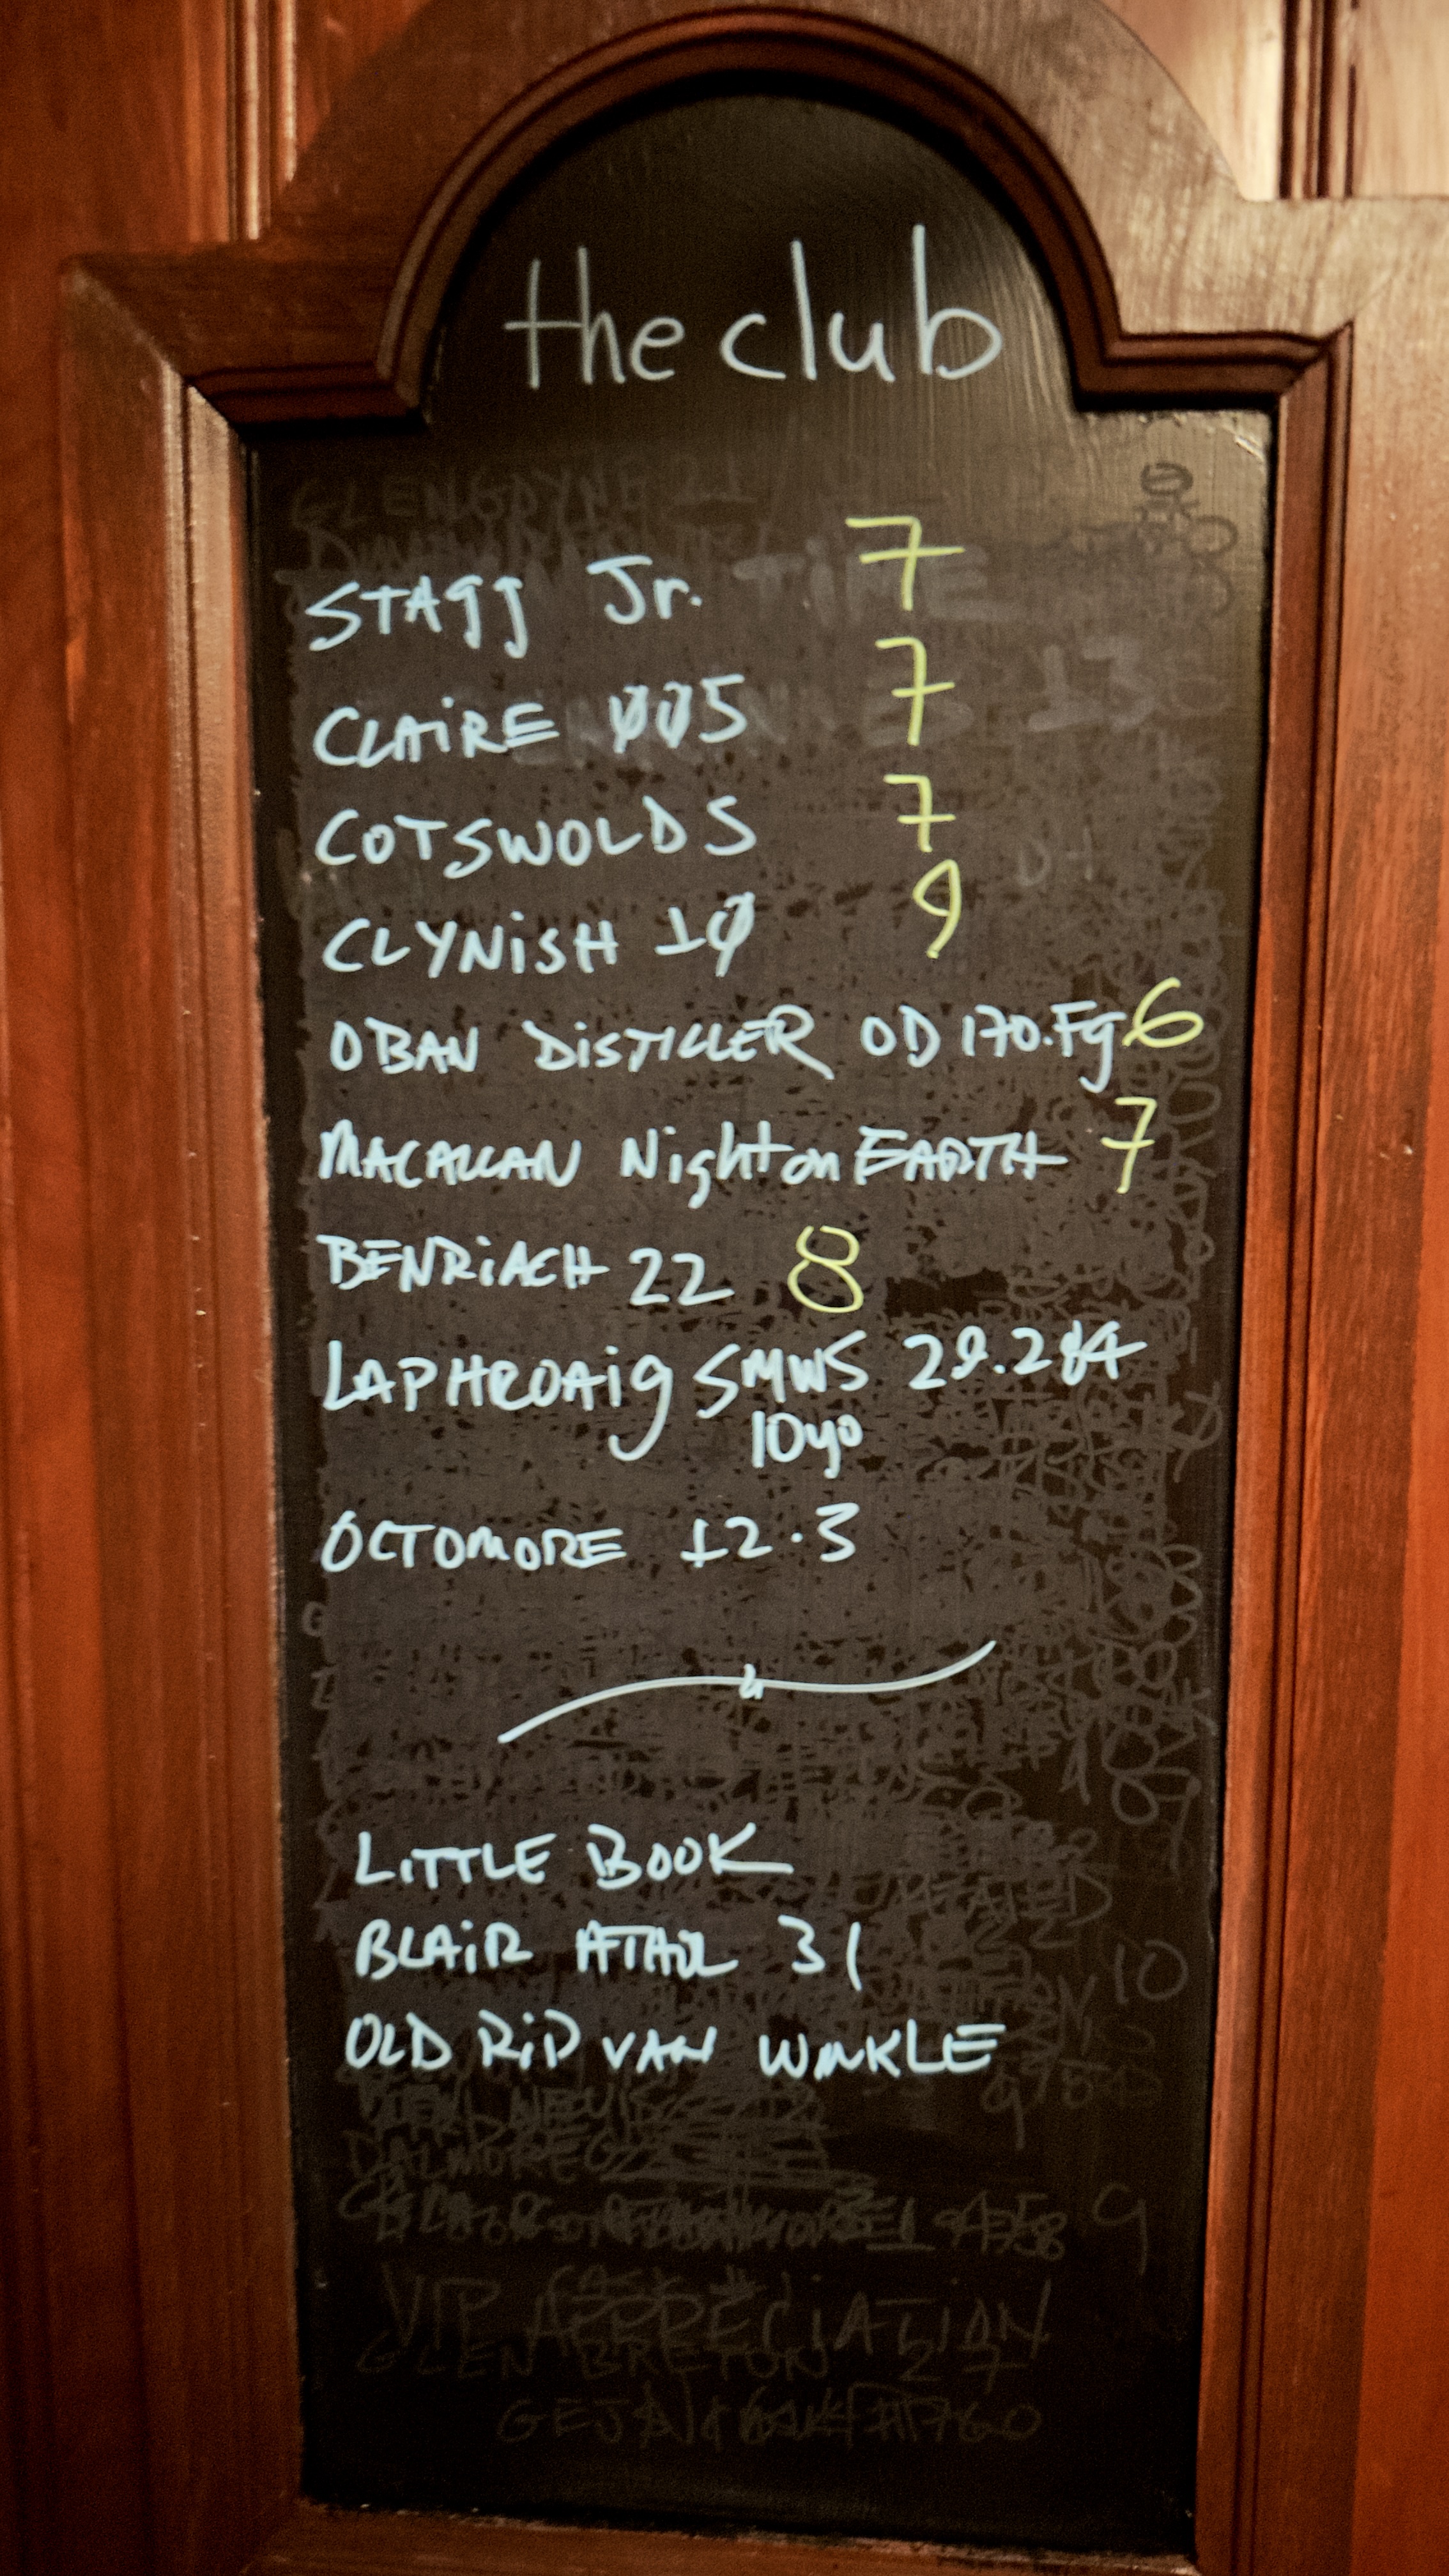 the club
STAGG Jr. 7
CLAIRE 005 7
COTSWOLDS 7
CLYNISH 10 9
OBAN DISTILLER OD 170.Fg 6
MACALLAN Night on EARTH 7
BENRIACH 22 8
LAPHROAIG SMWS 29.284
10yo
OCTOMORE 12.3
LITTLE BOOK
BLAIR ATHOL 31
OLD RIP VAN WINKLE
VIP APPRECIATION
GLEN BRETON 27